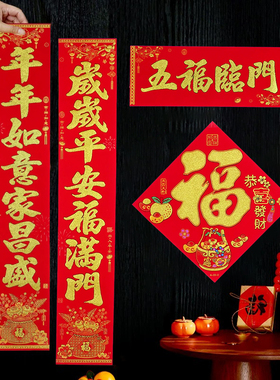 五福臨門
歲歲平安福滿門
年年如意家昌盛
福
恭喜
發財
福
福